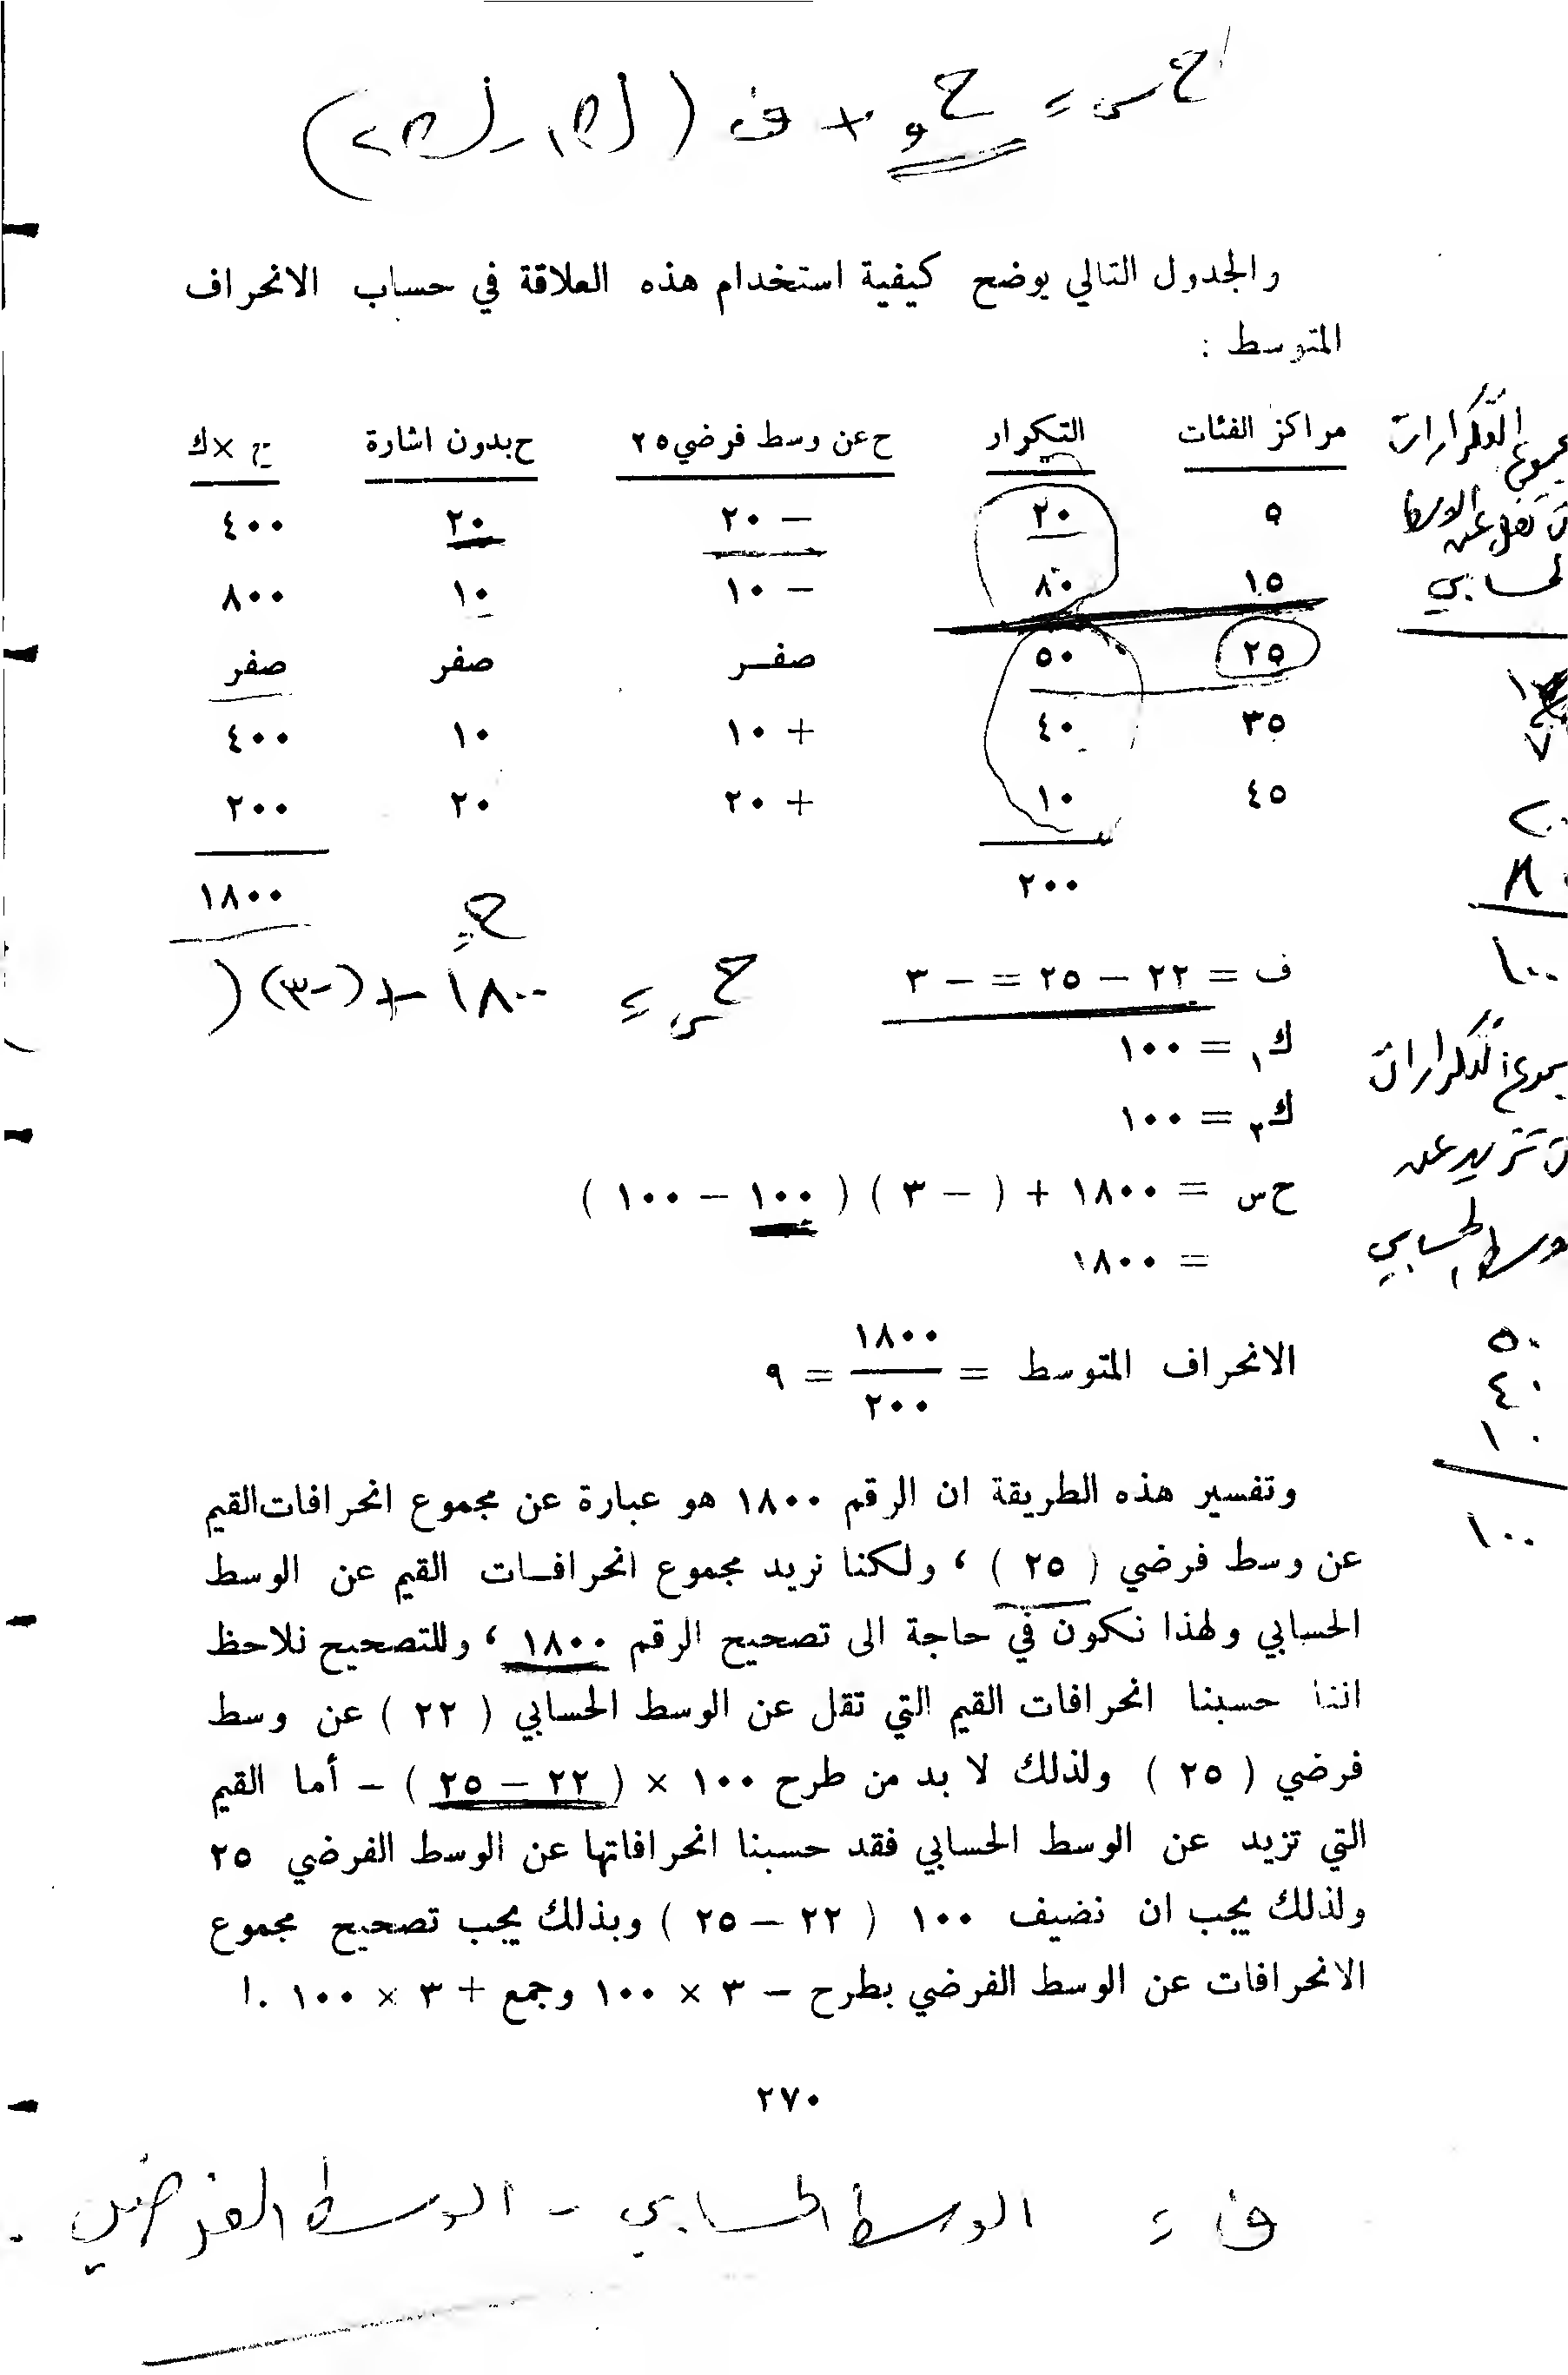 ح س = ح و + ف ( ك١ - ك٢ )
والجدول التالي يوضح كيفية استخدام هذه العلاقة في حساب الانحراف
المتوسط :
مراكز الفئات التكرار ح عن وسط فرضي ٢٥ ح بدون اشارة ح × ك
٥ ٢٠ — ٢٠ ٢٠ ٤٠٠
١٥ ٨٠ — ١٠ ١٠ ٨٠٠
٢٥ ٥٠ صفـر صفر صفر
٣٥ ٤٠ + ١٠ ١٠ ٤٠٠
٤٥ ١٠ + ٢٠ ٢٠ ٢٠٠
٢٠٠ ١٨٠٠
مجموع التكرارات
تقل عن الوسط
الحسابي
٢٠
٨٠
١٠٠
ف = ٢٢ — ٢٥ = — ٣
ح س = ١٨٠٠ + (-٣) (
ك١ = ١٠٠
ك٢ = ١٠٠
ح س = ١٨٠٠ + ( — ٣ ) ( ١٠٠ — ١٠٠ )
= ١٨٠٠
مجموع التكرارات
تزيد عن
وسط الحسابي
٥٠
٤٠
١٠
١٠٠
الانحراف المتوسط = ١٨٠٠ / ٢٠٠ = ٩
وتفسير هذه الطريقة ان الرقم ١٨٠٠ هو عبارة عن مجموع انحرافات القيم
عن وسط فرضي ( ٢٥ ) ، ولكنا نريد مجموع انحرافـات القيم عن الوسط
الحسابي ولهذا نكون في حاجة الى تصحيح الرقم ١٨٠٠ ، وللتصحيح نلاحظ
اننا حسبنا انحرافات القيم التي تقل عن الوسط الحسابي ( ٢٢ ) عن وسط
فرضي ( ٢٥ ) ولذلك لا بد من طرح ١٠٠ × ( ٢٢ — ٢٥ ) - أما القيم
التي تزيد عن الوسط الحسابي فقد حسبنا انحرافاتها عن الوسط الفرضي ٢٥
ولذلك يجب ان نضيف ١٠٠ ( ٢٢ — ٢٥ ) وبذلك يجب تصحيح مجموع
الانحرافات عن الوسط الفرضي بطرح — ٣ × ١٠٠ وجمع + ٣ × ١٠٠ .ا
٢٧٠
ف = الوسط الحسابي - الوسط الفرضي .